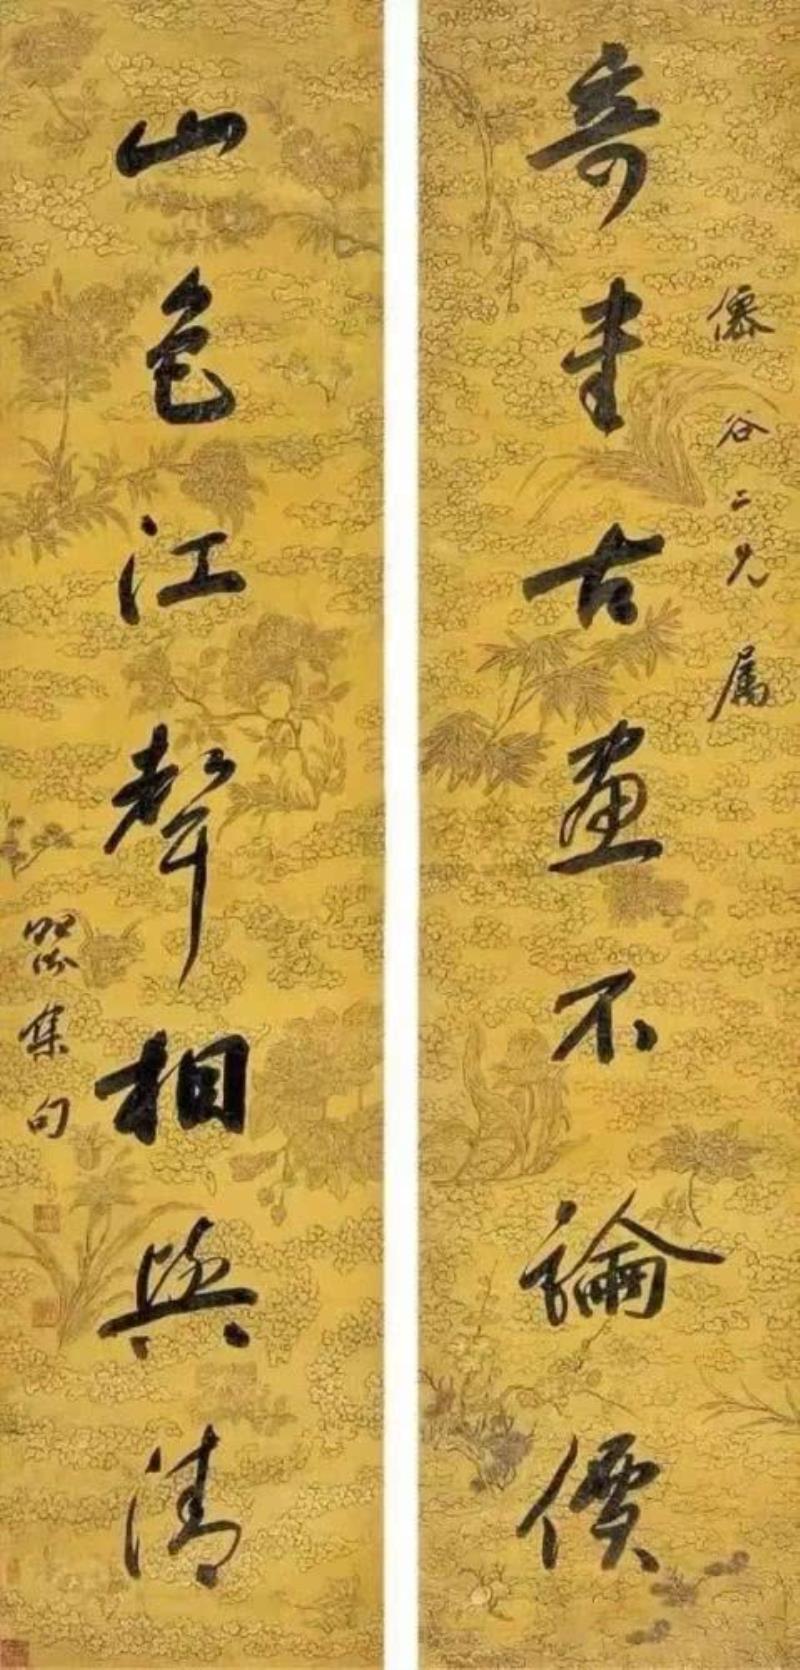 僊谷二兄属
奇書古畫不論價
山色江聲相與清
集句